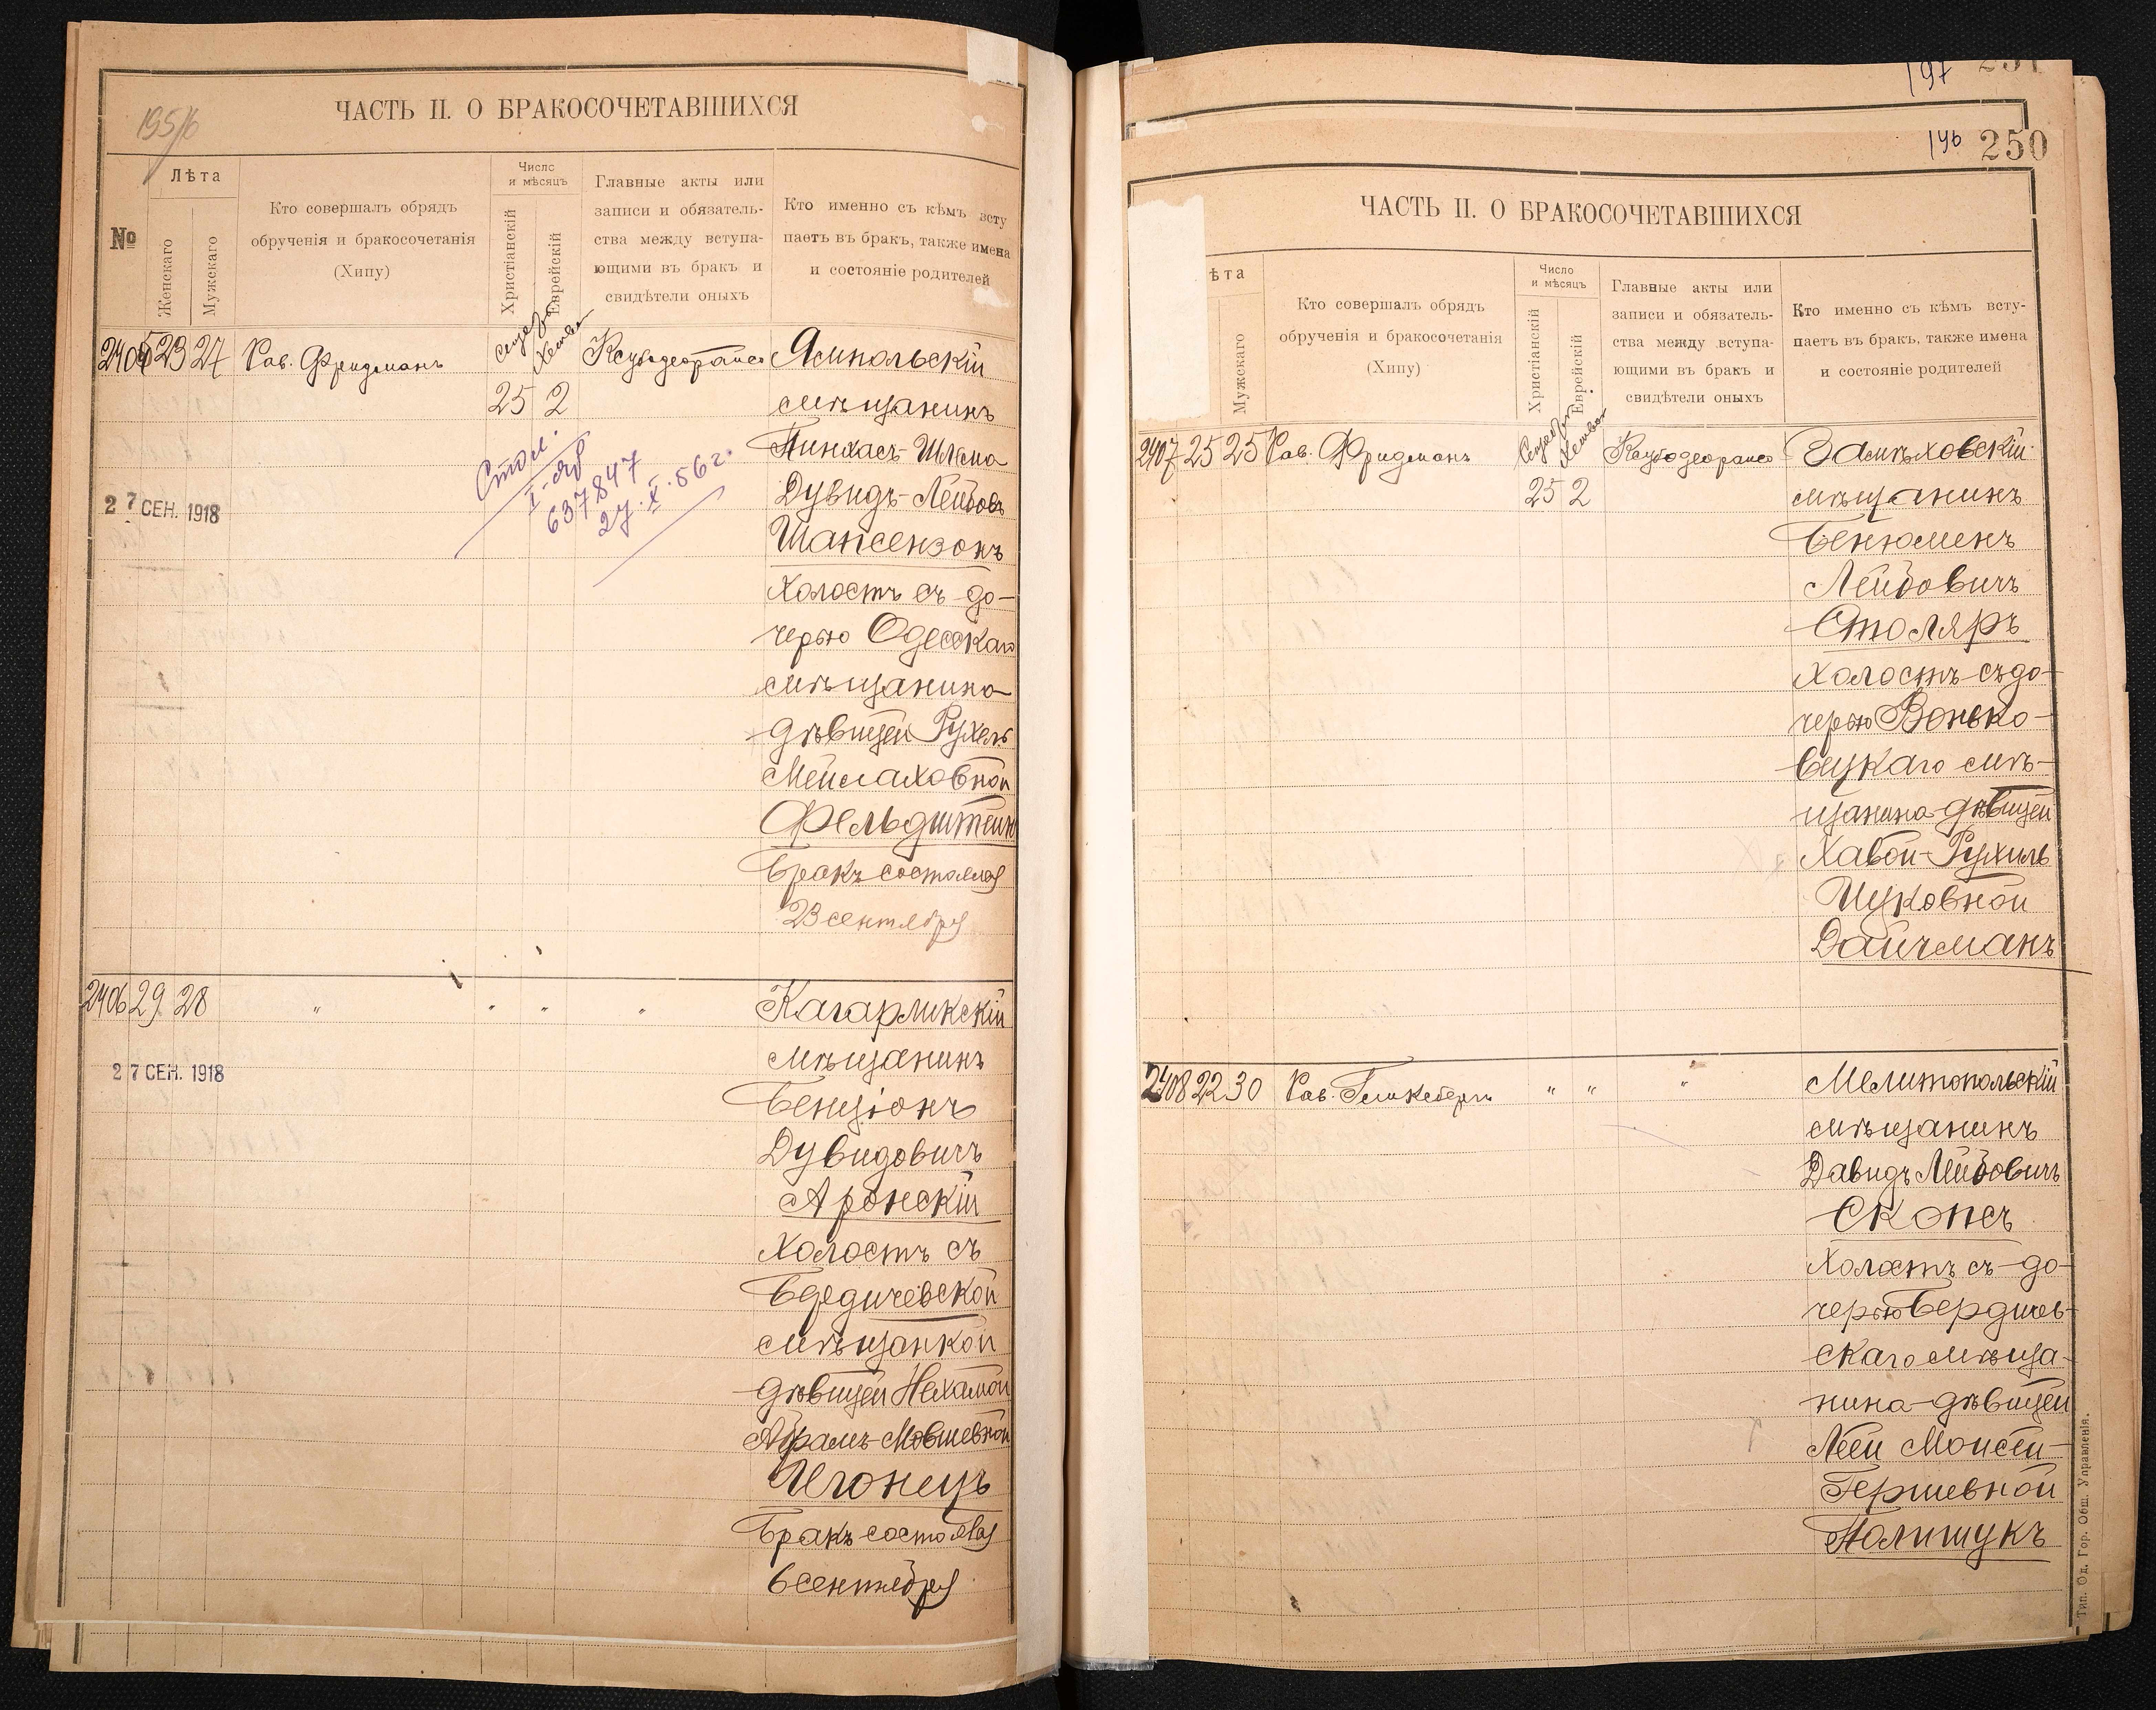 195/6
ЧАСТЬ II. О БРАКОСОЧЕТАВШИХСЯ
№
Лѣта
Женскаго
Мужскаго
Кто совершалъ обрядъ
обрученія и бракосочетанія
(Хипу)
Число
и мѣсяцъ
Христіанскій
Еврейскій
Главные акты или
записи и обязатель-
ства между вступа-
ющими въ бракъ и
свидѣтели оныхъ
Кто именно съ кѣмъ всту
паетъ въ бракъ, также имена
и состояніе родителей
2405 23 27 Рав. Фридманъ
25 2
27 СЕН. 1918
637847
27.X.56 г.
Ямпольскій
мѣщанинъ
Пинхасъ-Шлема
Дувидъ-Лейбовъ
Шапсензонъ
Холостъ съ до-
черью Одесскаго
мѣщанина
дѣвицей Рухель
Мейлаховной
Фельдштейнъ
Бракъ состоялся
23 сентября
2406 29 28 " " " "
27 СЕН. 1918
Кагарликскій
мѣщанинъ
Бенціонъ
Дувидовичъ
Аронскій
Холостъ съ
Бердичевской
мѣщанкой
дѣвицей Нехамой
Абрамъ-Мовшевной
Игонецъ
Бракъ состоялся
6 сентября
197 251
196 250
ЧАСТЬ II. О БРАКОСОЧЕТАВШИХСЯ
ѣта
Мужскаго
Кто совершалъ обрядъ
обрученія и бракосочетанія
(Хипу)
Число
и мѣсяцъ
Христіанскій
Еврейскій
Главные акты или
записи и обязатель-
ства между вступа-
ющими въ бракъ и
свидѣтели оныхъ
Кто именно съ кѣмъ всту-
паетъ въ бракъ, также имена
и состояніе родителей
2407 25 25 Рав. Фридманъ
25 2
Замѣховскій
мѣщанинъ
Бенюменъ
Лейбовичъ
Столяръ
Холостъ съ до-
черью Вонько-
вецкаго мѣ-
щанина дѣвицей
Хавой-Рухиль
Ицковной
Дайчманъ
2408 22 30 Рав. " " "
Мелитопольскій
мѣщанинъ
Давидъ Лейбовичъ
Скопсъ
Холостъ съ до-
черью Бердичев-
скаго мѣща-
нина дѣвицей
Леей Моисей-
Гершевной
Полищукъ
Тип. Од. Гор. Общ. Управленія.